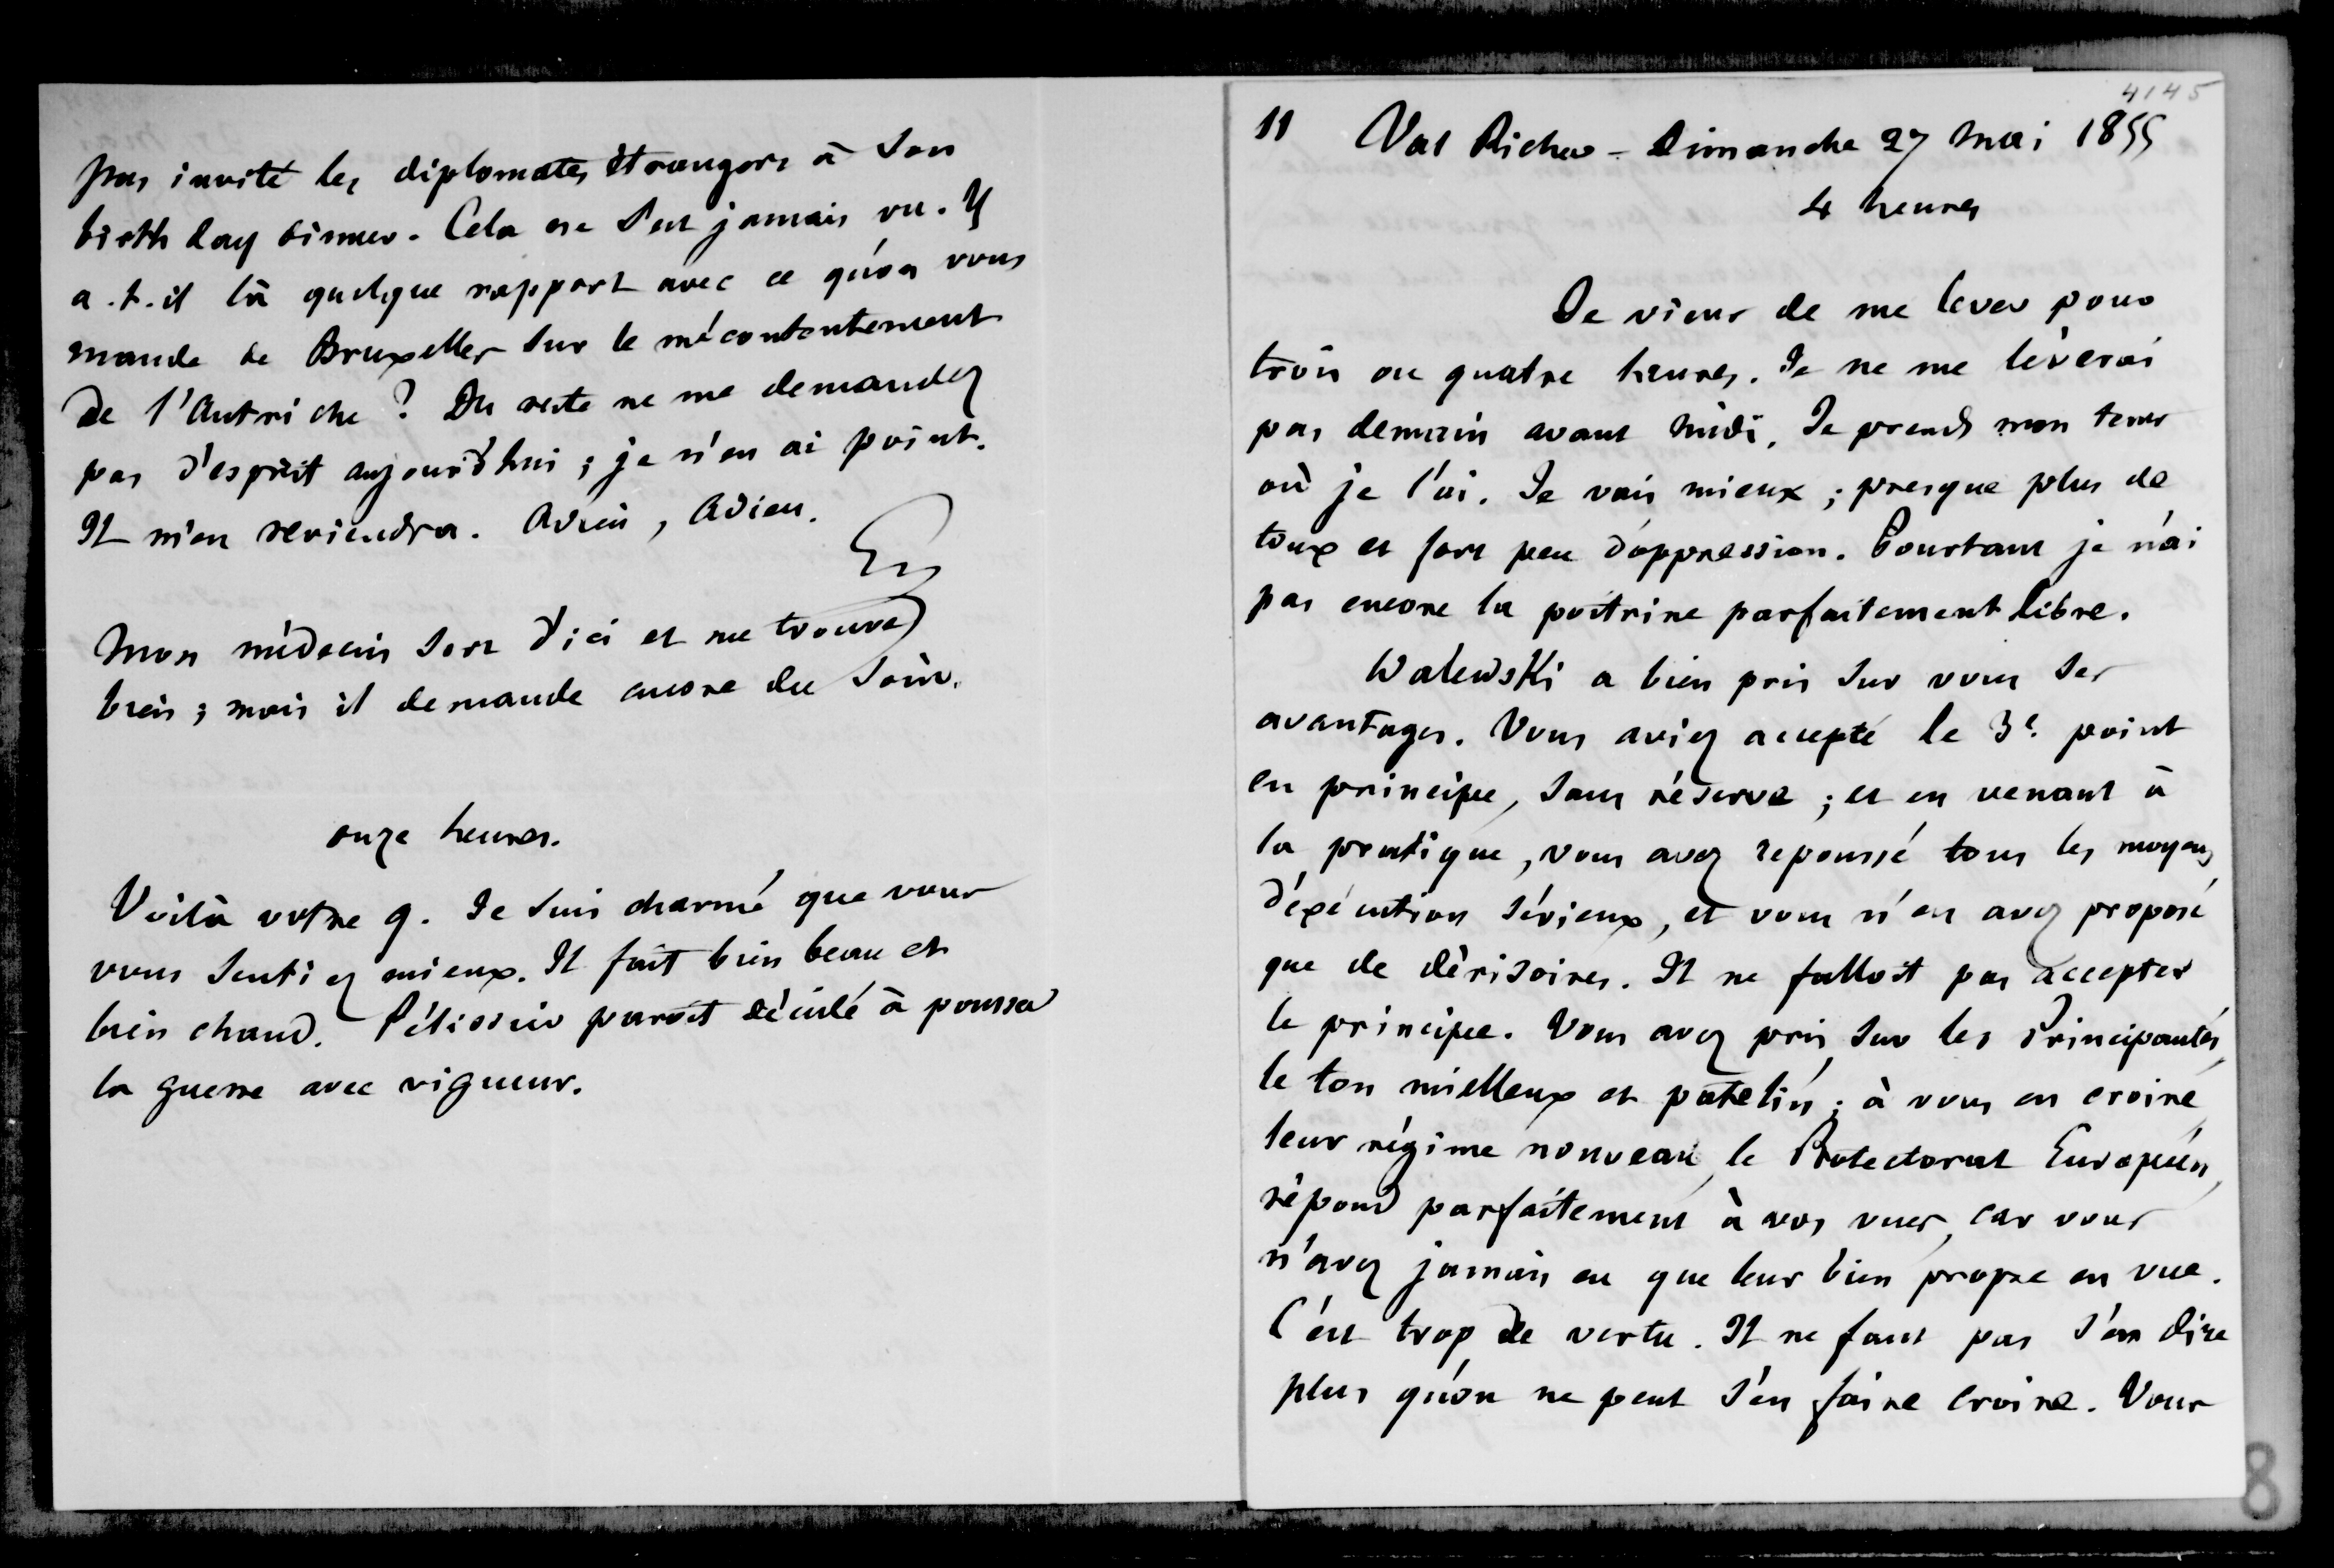 pas invité les diplomates étrangers à son
birth day dinner. Cela ne s'est jamais vu. Y
a.t.il là quelque rapport avec ce qu'on vous
mande de Bruxelles sur le mécontentement
de l'Autriche ? Du reste ne me demandez
pas d'esprit aujourd'hui ; je n'en ai point.
Il m'en reviendra. Adieu, Adieu.
Mon médecin sort d'ici et me trouve
bien ; mais il demande encore du soin.
onze heures.
Voilà votre 9. Je suis charmé que vous
vous sentiez mieux. Il fait bien beau et
bien chaud. Pélissier paroit décidé à pousser
la guerre avec vigueur.
4145
11 Val Richer - Dimanche 27 Mai 1855
4 heures
Je viens de me lever pour
trois ou quatre heures. Je ne me lèverai
pas demain avant midi. Je prends mon tems
où je l'ai. Je vais mieux ; presque plus de
toux et fort peu d'oppression. Pourtant je n'ai
pas encore la poitrine parfaitement libre.
Walewski a bien pris sur vous ses
avantages. Vous aviez accepté le 3e. point
en principe, sans réserve ; et en venant à
la pratique, vous avez repoussé tous les moyens
d'exécution sérieux, et vous n'en avez proposé
que de dérisoires. Il ne falloit pas accepter
le principe. Vous avez pris sur les Principautés,
le ton mielleux et patelin ; à vous en croire,
leur régime nouveau, le Protectorat Européen,
répond parfaitement à vos vues, car vous
n'avez jamais eu que leur bien propre en vue.
C'est trop de vertu. Il ne faut pas s'en dire
plus qu'on ne peut s'en faire croire. Vous
8